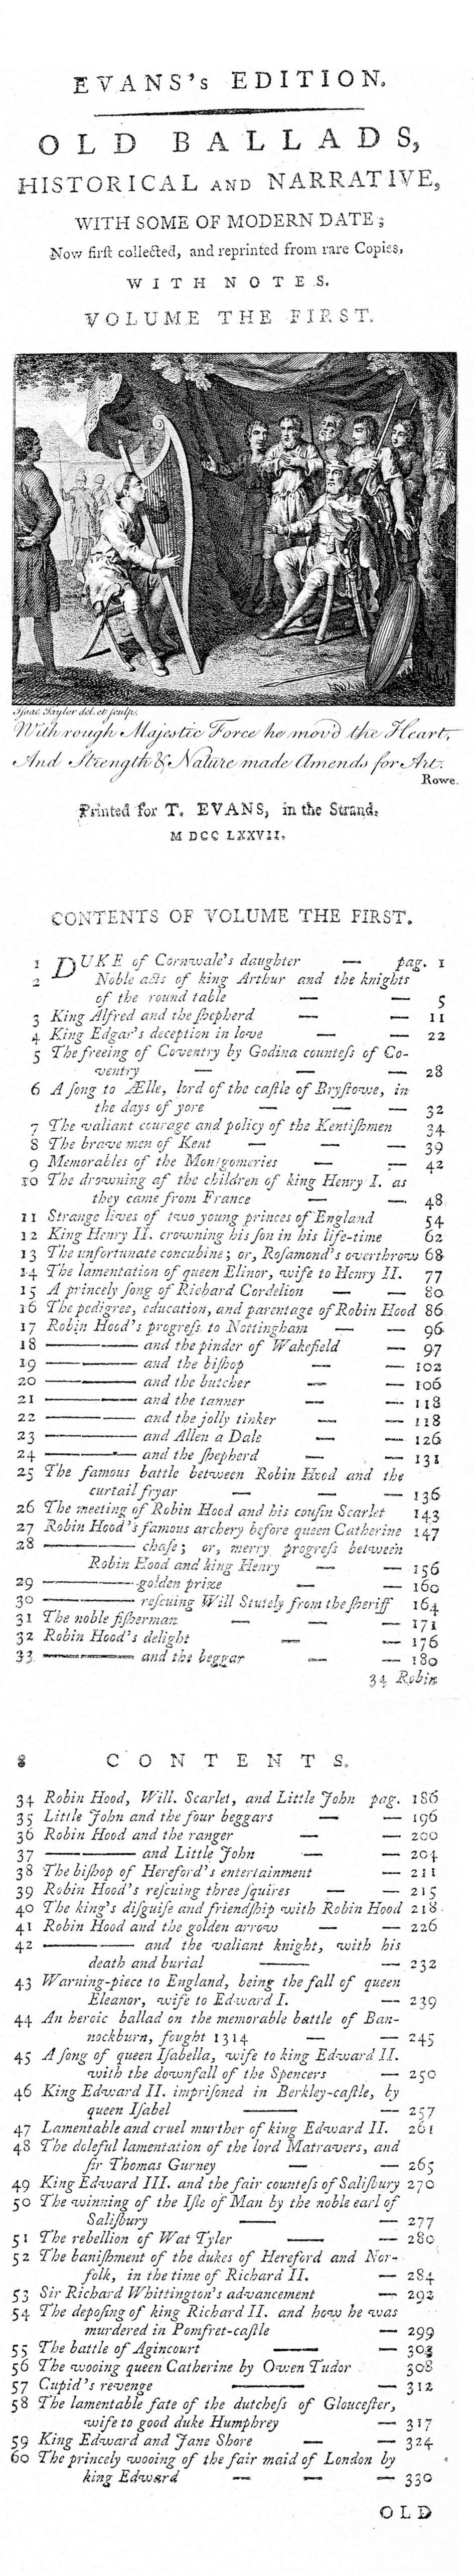 EVANS's EDITION.
OLD BALLADS,
HISTORICAL AND NARRATIVE,
WITH SOME OF MODERN DATE;
Now firſt collected, and reprinted from rare Copies,
WITH NOTES.
VOLUME THE FIRST.
Iſaac Taylor del. et ſculp.
With rough Majestic Force he mov'd the Heart,
And Strength & Nature made Amends for Art.
Rowe.
Printed for T. EVANS, in the Strand.
M DCC LXXVII.
CONTENTS OF VOLUME THE FIRST.
1 DUKE of Cornwale's daughter — pag. 1
2 Noble acts of king Arthur and the knights
of the round table — — 5
3 King Alfred and the ſhepherd — — 11
4 King Edgar's deception in love — — 22
5 The freeing of Coventry by Godina counteſs of Co-
ventry — — — 28
6 A ſong to Ælle, lord of the caſtle of Bryſtowe, in
the days of yore — — — 32
7 The valiant courage and policy of the Kentiſhmen 34
8 The brave men of Kent — — — 39
9 Memorables of the Montgomeries — — 42
10 The drowning of the children of king Henry I. as
they came from France — — 48
11 Strange lives of two young princes of England 54
12 King Henry II. crowning his ſon in his life-time 62
13 The unfortunate concubine; or, Roſamond's overthrow 68
14 The lamentation of queen Elinor, wife to Henry II. 77
15 A princely ſong of Richard Cordelion — — 80
16 The pedigree, education, and parentage of Robin Hood 86
17 Robin Hood's progreſs to Nottingham — — 96
18 ——— and the pinder of Wakefield — 97
19 ——— and the biſhop — — 102
20 ——— and the butcher — — 106
21 ——— and the tanner — — 118
22 ——— and the jolly tinker — — 118
23 ——— and Allen a Dale — — 126
24 ——— and the ſhepherd — — 131
25 The famous battle between Robin Hood and the
curtail fryar — — — 136
26 The meeting of Robin Hood and his couſin Scarlet 143
27 Robin Hood's famous archery before queen Catherine 147
28 ——— chaſe; or, merry progreſs between
Robin Hood and king Henry — — 156
29 ——— golden prize — — 160
30 ——— reſcuing Will Stutely from the ſheriff 164
31 The noble fiſherman — — — 171
32 Robin Hood's delight — — 176
33 ——— and the beggar — — 180
34 Robin
8 CONTENTS.
34 Robin Hood, Will. Scarlet, and Little John pag. 186
35 Little John and the four beggars — — 196
36 Robin Hood and the ranger — — 200
37 ——— and Little John — — 204
38 The biſhop of Hereford's entertainment — 211
39 Robin Hood's reſcuing three ſquires — — 215
40 The king's diſguiſe and friendſhip with Robin Hood 218
41 Robin Hood and the golden arrow — — 226
42 ——— and the valiant knight, with his
death and burial ——— — 232
43 Warning-piece to England, being the fall of queen
Eleanor, wife to Edward I. — 239
44 An heroic ballad on the memorable battle of Ban-
nockburn, fought 1314 — — 245
45 A ſong of queen Iſabella, wife to king Edward II.
with the downfall of the Spencers — 250
46 King Edward II. impriſoned in Berkley-caſtle, by
queen Iſabel ——— — 257
47 Lamentable and cruel murther of king Edward II. 261
48 The doleful lamentation of the lord Matravers, and
ſir Thomas Gurney — — 265
49 King Edward III. and the fair counteſs of Saliſbury 270
50 The winning of the Iſle of Man by the noble earl of
Saliſbury ——— — 277
51 The rebellion of Wat Tyler ——— — 280
52 The baniſhment of the dukes of Hereford and Nor-
folk, in the time of Richard II. — 284
53 Sir Richard Whittington's advancement — 292
54 The depoſing of king Richard II. and how he was
murdered in Pomfret-caſtle — 299
55 The battle of Agincourt ——— — 303
56 The wooing queen Catherine by Owen Tudor 308
57 Cupid's revenge ——— — 312
58 The lamentable fate of the dutcheſs of Glouceſter,
wife to good duke Humphrey — 317
59 King Edward and Jane Shore — — 324
60 The princely wooing of the fair maid of London by
king Edward — — — 330
OLD